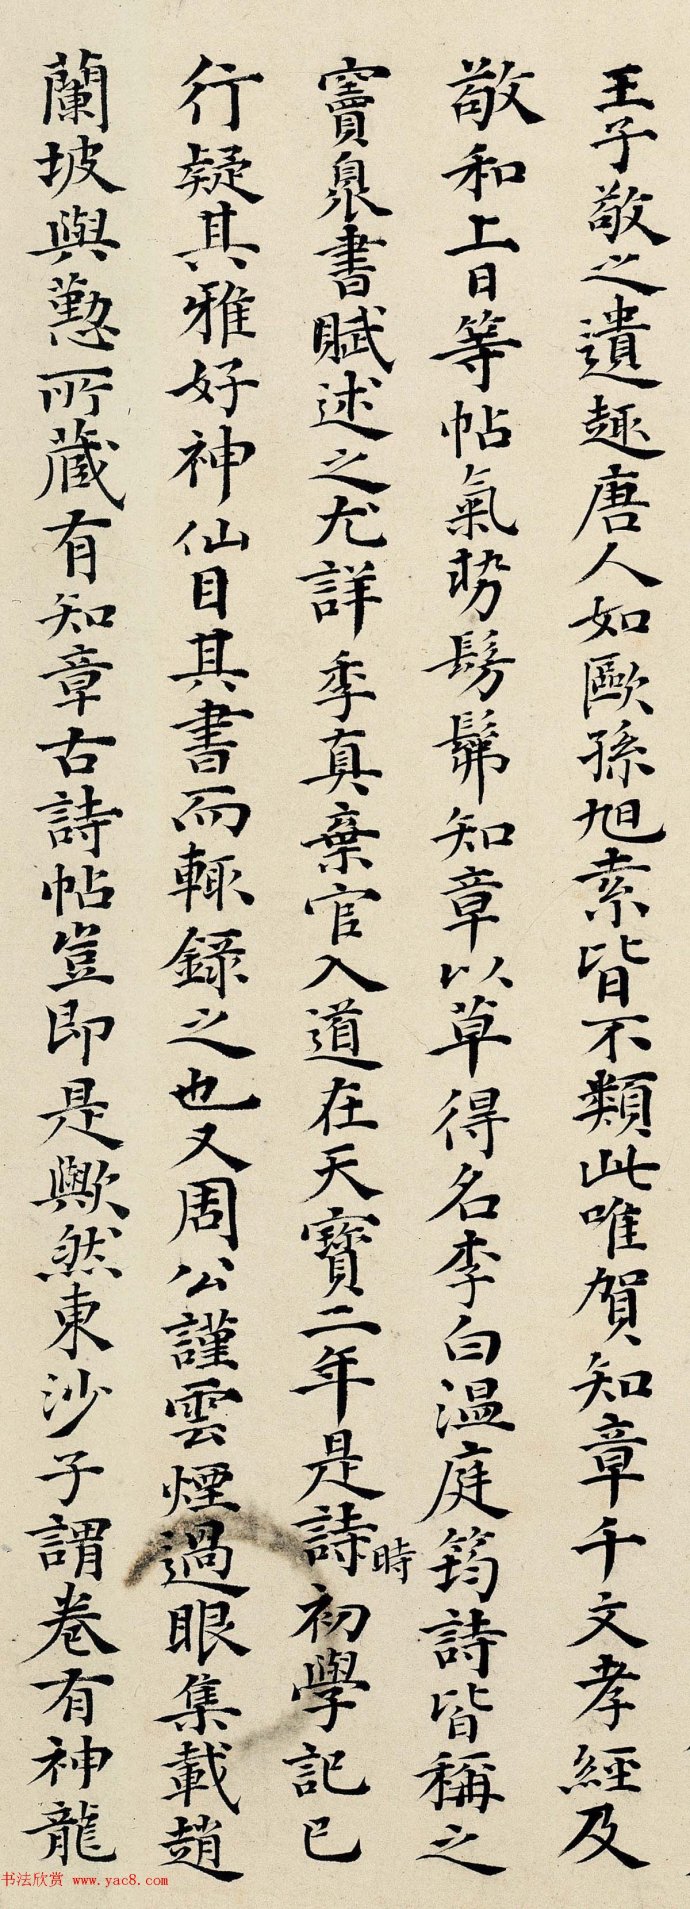 王子敬之遺趣唐人如歐孫旭素皆不類此唯賀知章千文孝經及
敬和上日等帖氣勢髣髴知章以草得名李白温庭筠詩皆稱之
竇臮書賦述之尤詳季真棄官入道在天寶二年是詩時初學記已
行疑其雅好神仙目其書而輙錄之也又周公謹雲煙過眼集載趙
蘭坡與懃所蔵有知章古詩帖豈即是歟然東沙子謂卷有神龍
书法欣赏 www.yac8.com